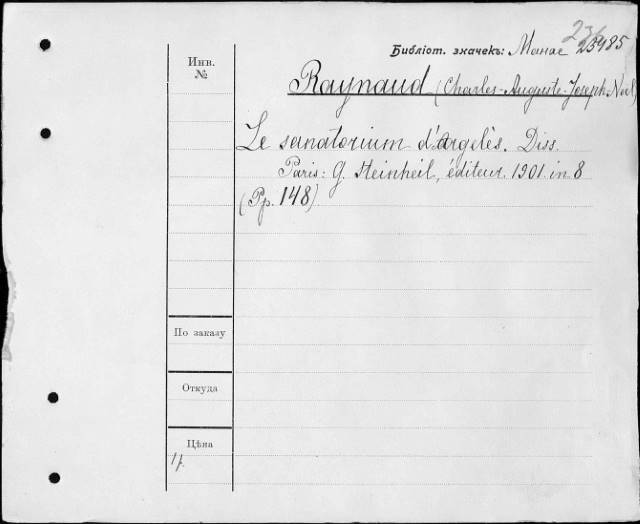 236
Библіот. значекъ: Манас 23985
Инв.
№
Raynaud (Charles-Auguste-Joseph-Noël)
Le sanatorium d'Argelès. Diss.
Paris: G. Steinheil, éditeur. 1901. in 8
(Pp. 148)
По заказу
Откуда
Цѣна